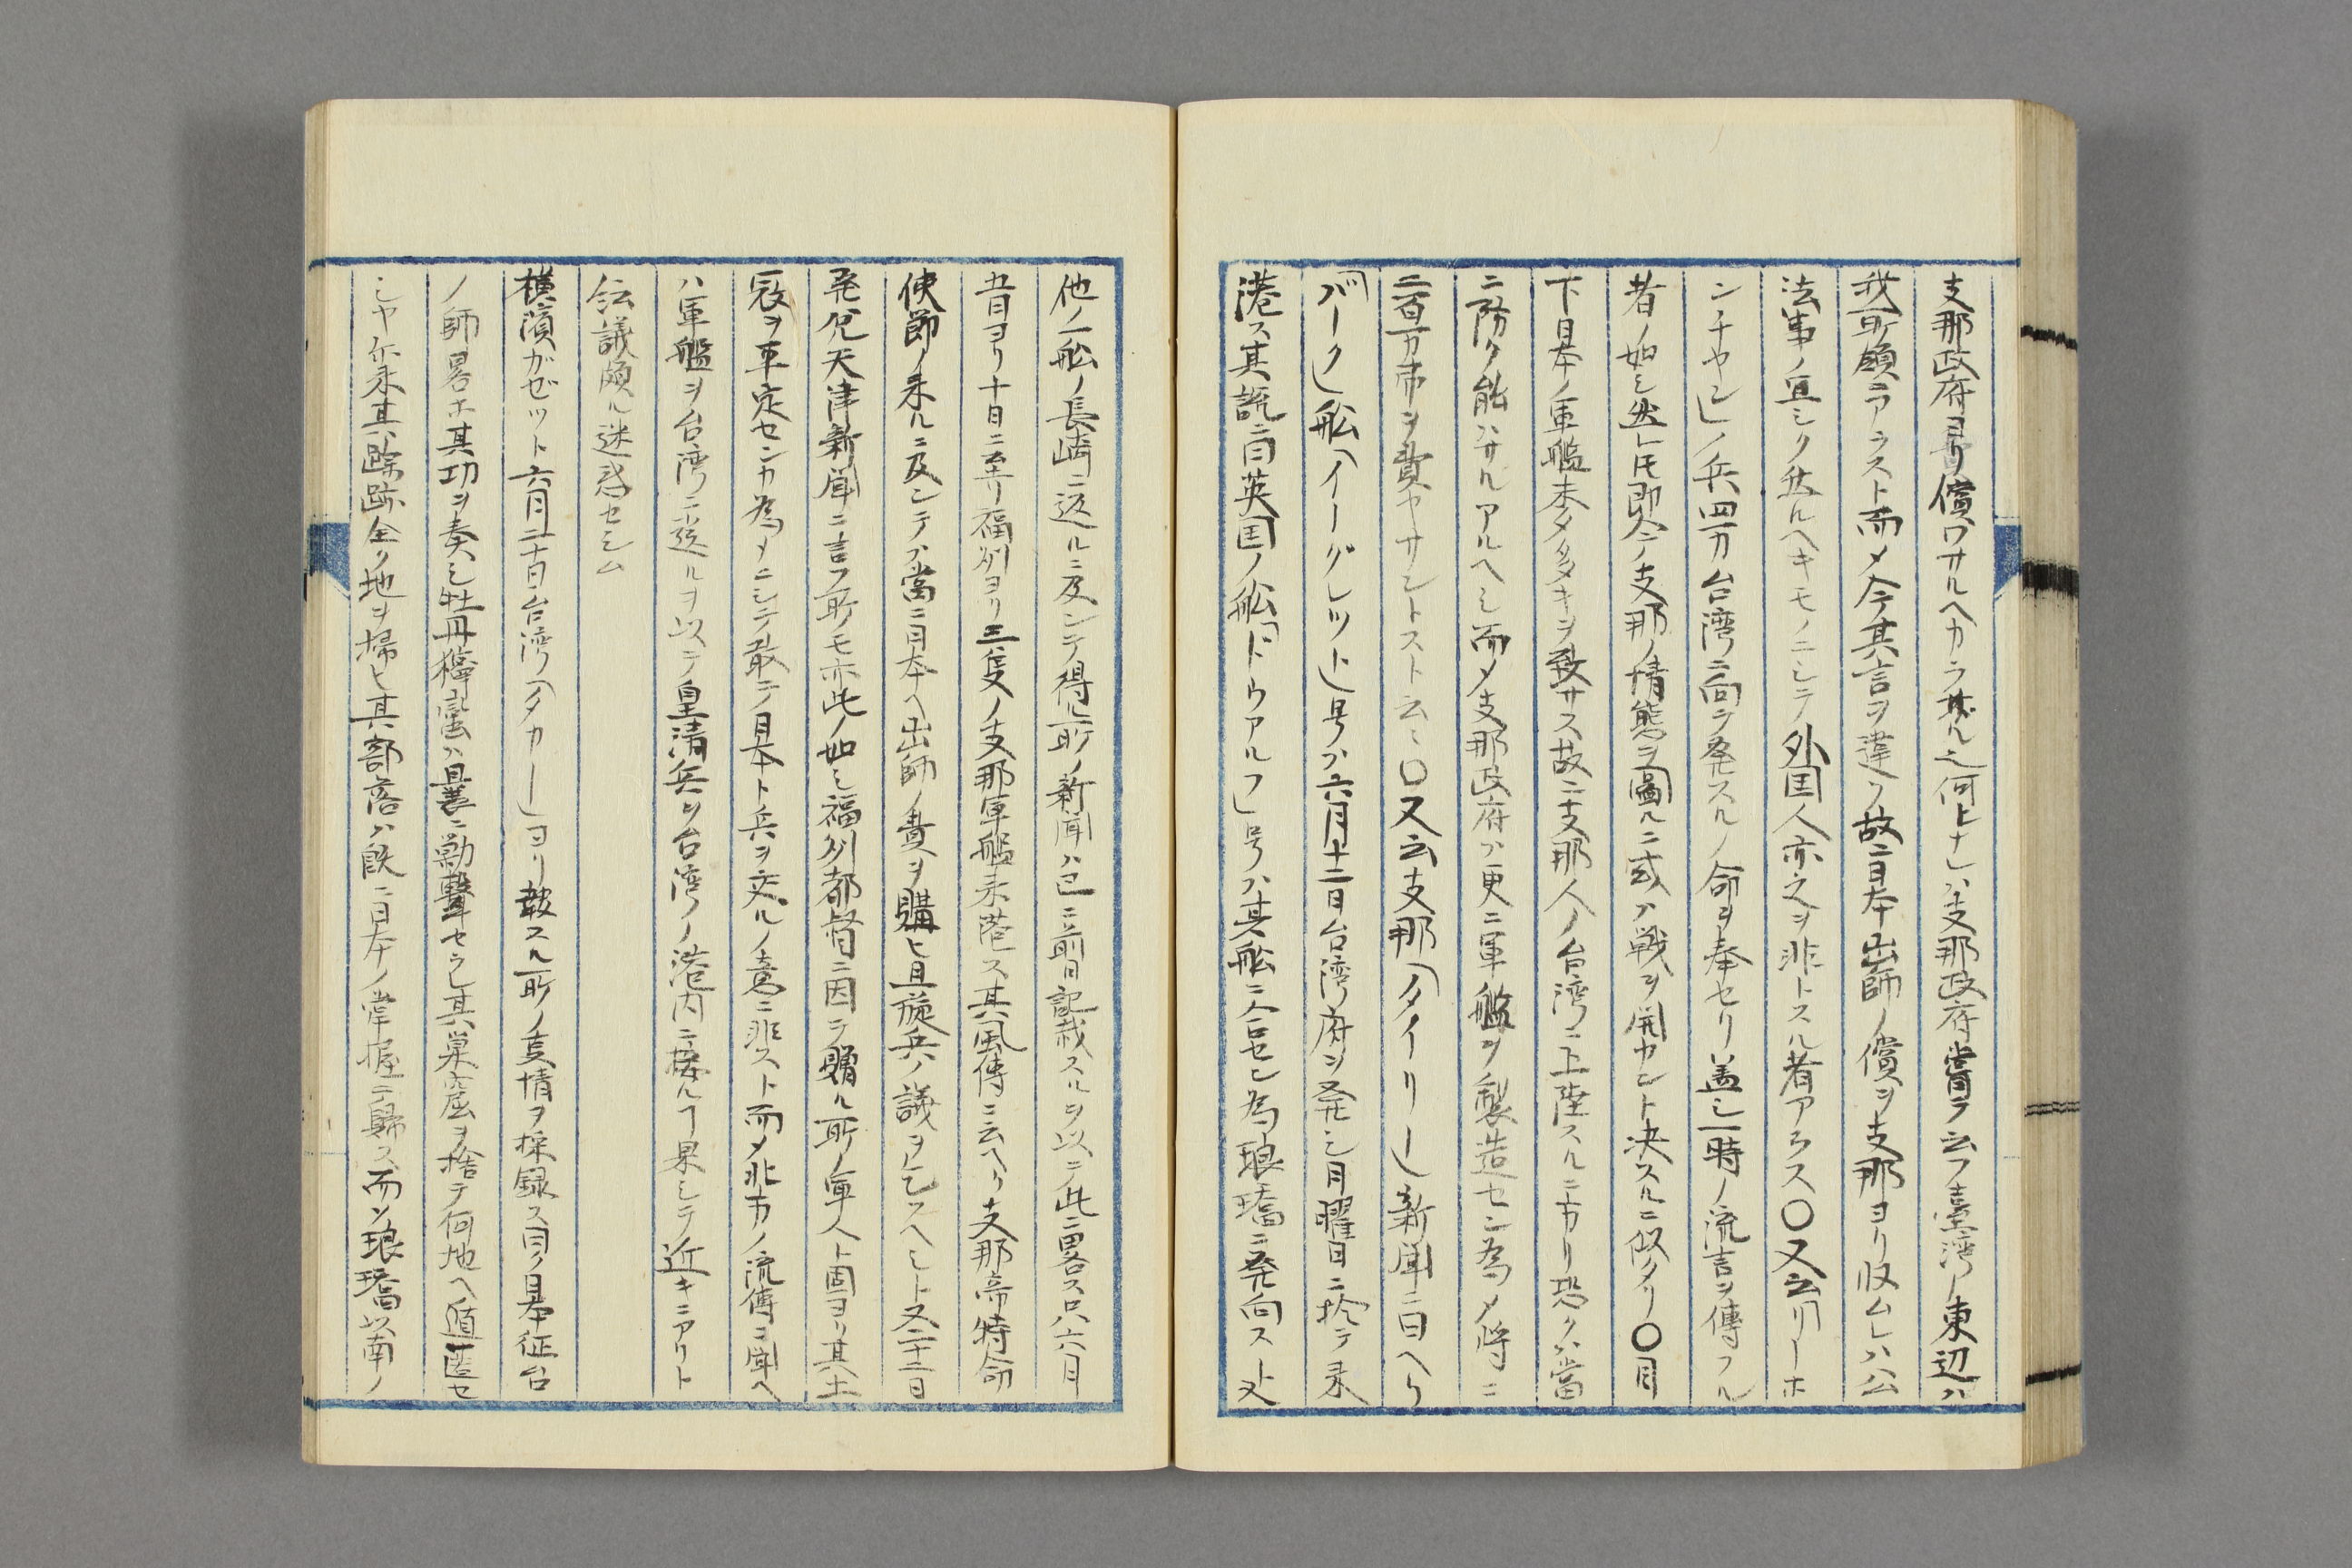 支那政府ヨリ償ワサルヘカラス之何トナレハ支那政府嘗テ云フ臺湾ノ東辺ハ
我所領ニアラスト而メ今其言ヲ違フ故ニ日本出師ノ償ヲ支那ヨリ收ムレハ公
法事ノ宜シク然ルヘキモノニシテ外国人亦之ヲ非トスル者アラス〇又云「リーホ
ンチヤン」ノ兵四万台湾ニ向テ発スルノ命ヲ奉セリ盖シ一時ノ流言ヲ傳フル
者ノ如シ然レ𪜈即今ノ支那ノ情態ヲ圖ルニ或ハ戦ヲ開カント決スルニ似タリ〇目
下日本ノ軍艦未タ多キヲ致サス故ニ支那人ノ台湾ニ上陸スルニ方リ恐クハ當
ニ防ク能ハサルアルヘシ而メ支那政府ハ更ニ軍艦ヲ製造セン為メ将ニ
二百万弗ヲ費ヤサントスト云々〇又云支那「タイリー」新聞ニ曰ヘリ
「バーク」舩「イーグレット」号ハ六月十二日台湾府ヲ発シ月曜日ニ於テ来
港ス其説ニ曰英国ノ舩「ドウアルフ」号ハ其舩ニ合セン為琅𤩝ニ発向ス又
他ノ一舩ノ長崎ニ返ルニ及ンテ得ル所ノ新聞ハ已ニ前日記載スルヲ以テ此ニ畧ス只六月
五日ヨリ十日ニ至リ福州ヨリ三隻ノ支那軍艦来港ス其風傳ニ云ヘリ支那帝特命
使節ノ来ルニ及ンテハ當ニ日本ヘ出師ノ費ヲ購ヒ且旋兵ノ議ヲ乞フヘシト又二十二日
発兌天津新聞ニ言フ所モ亦此ノ如シ福州都督ニ因テ贈ル所ノ軍人ト固ヨリ其土
冦ヲ平定センカ為メニシテ敢テ日本ト兵ヲ交ルノ意ニ非スト而メ北方ノ流傳ニ聞ヘ
ハ軍艦ヲ台湾ニ送ルヲ以テ皇清兵ヲ台湾ノ港内ニ接ルヿ果シテ近キニアリト
伝議頗ル迷惑セシム
横濱ガゼット六月二十日台湾「タカー」ヨリ報スル所ノ夏情ヲ採録ス曰ク日本征台
ノ師畧ホ其功ヲ奏シ牡丹獰蛮ハ曩ニ勦撃セラレ其巣窟ヲ捨テ何地ヘ遁匿セ
シヤ尓来其踪跡全ク地ヲ掃ヒ其部落ハ既ニ日本ノ掌握ニ歸ス而ン琅𤩝以南ノ